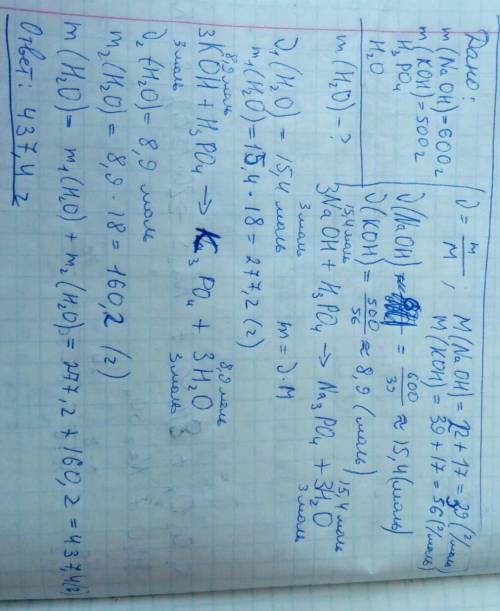 Дано:
m(NaOH)=600г
m(KOH)=500г
H3PO4
H2O
m(H2O)-?
ν = m/M ; M(NaOH) = 22+17=39(г/моль)
M(KOH) = 39+17=56(г/моль)
ν(NaOH) = 600/39 ≈ 15,4(моль)
ν(KOH) = 500/56 ≈ 8,9 (моль)
15,4моль 15,4моль
3NaOH + H3PO4 → Na3PO4 + 3H2O
3моль 3моль
ν1(H2O) = 15,4 моль m=ν·M
m1(H2O)=15,4·18=277,2(г)
8,9моль 8,9моль
3KOH + H3PO4 → K3PO4 + 3H2O
3моль 3моль
ν2(H2O)=8,9 моль
m2(H2O)=8,9·18=160,2 (г)
m(H2O)= m1(H2O)+m2(H2O)=277,2+160,2=437,4(г)
Ответ: 437,4 г